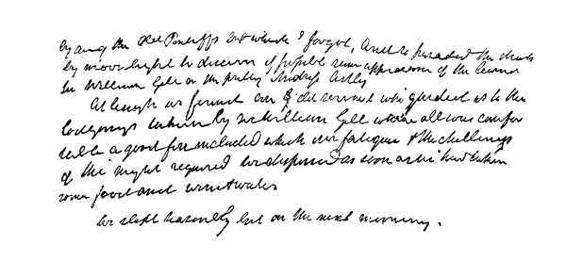 by any the old Pontiffs but which I forgot, and so paraded the streets
by moonlight to discern if possible some appearance of the learned
Sir William Gell or the pretty Mistress Ashley
At length we found one of old servant who guided us to the
lodgings taken by Sir William Gell where all was comfor
table a good fire included which our fatigue & the chillings
of the night required We dispersed as soon as we had taken
some food and wine & water
We slept reasonably but on the next morning.